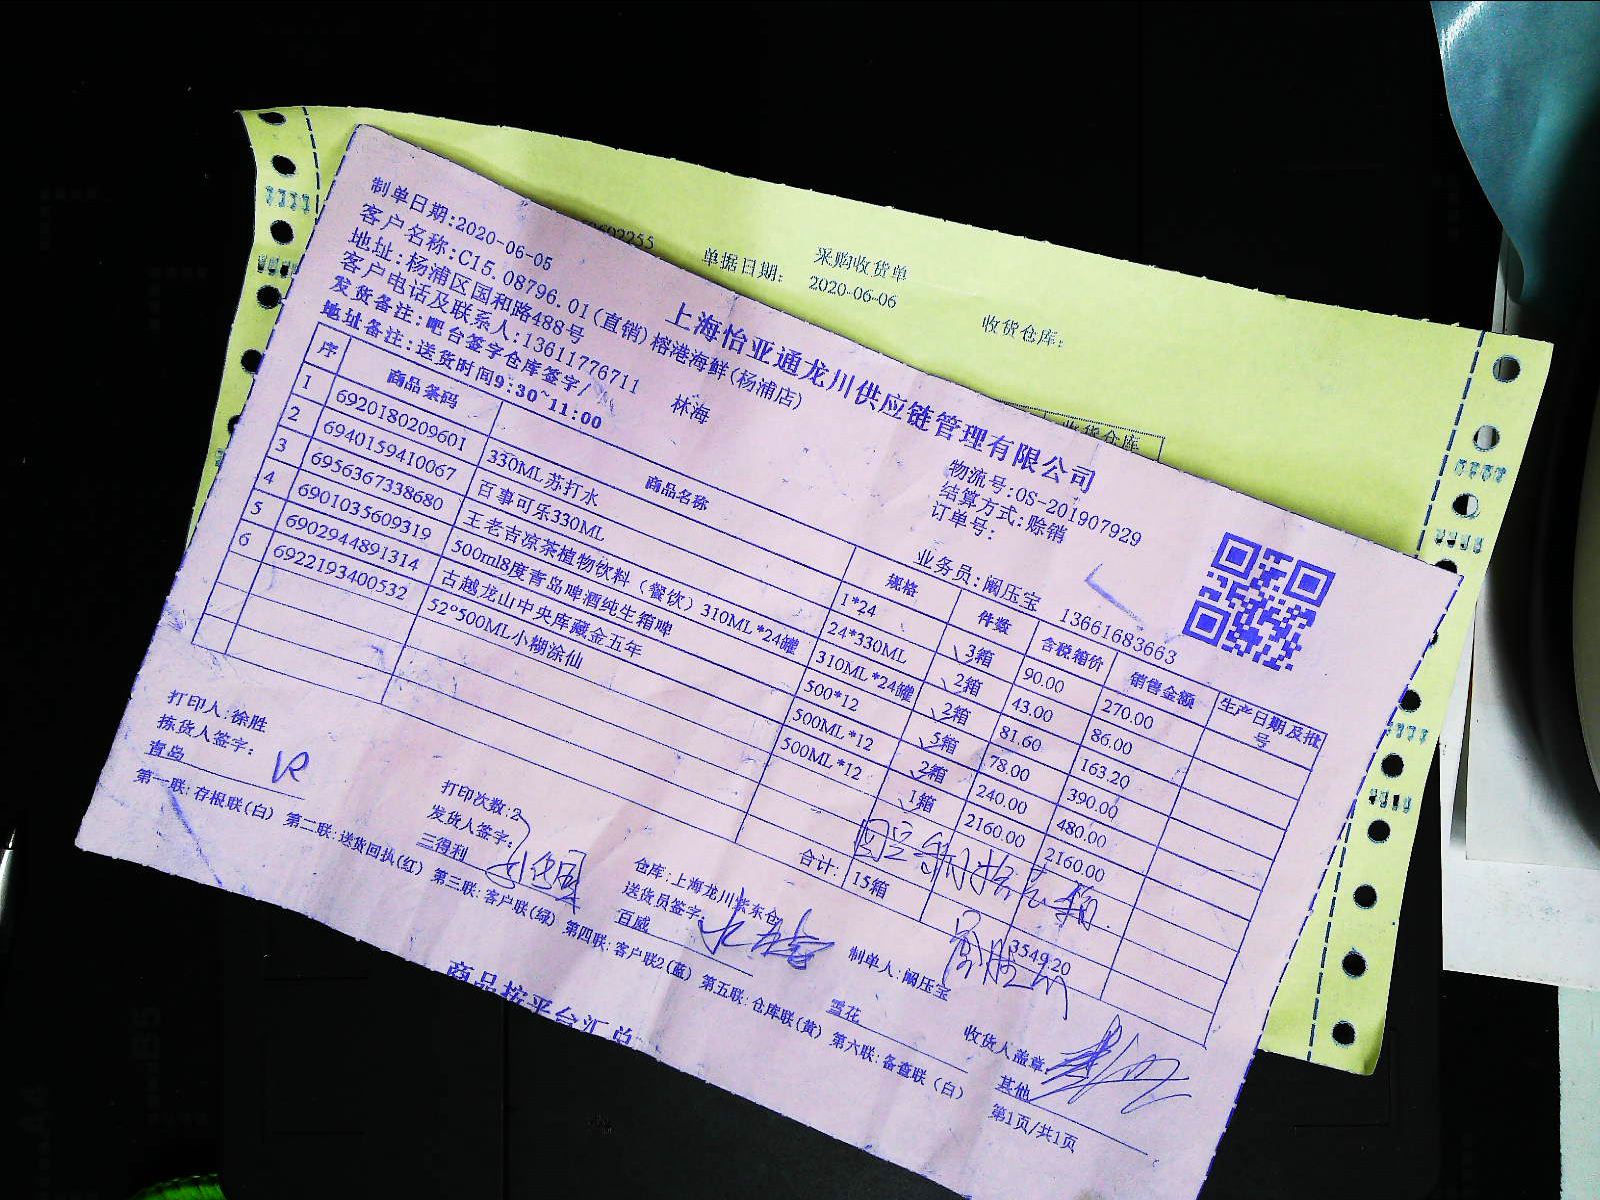 采购收货单
单据日期: 2020-06-06
收货仓库:
收货仓库
上海怡亚通龙川供应链管理有限公司
制单日期:2020-06-05
客户名称:C15.08796.01(直销)榕港海鲜(杨浦店)
地址:杨浦区国和路488号
客户电话及联系人:13611776711 林海
发货备注:吧台签字仓库签字/
地址备注:送货时间9:30~11:00
物流号:OS-201907929
结算方式:赊销
订单号:
业务员:阚压宝 13661683663
序 商品条码 商品名称 规格 件数 含税箱价 销售金额 生产日期及批号
1 6920180209601 330ML苏打水 1*24 3箱 90.00 270.00
2 6940159410067 百事可乐330ML 24*330ML 2箱 43.00 86.00
3 6956367338680 王老吉凉茶植物饮料（餐饮）310ML*24罐 310ML*24罐 2箱 81.60 163.20
4 6901035609319 500ml8度青岛啤酒纯生箱啤 500*12 5箱 78.00 390.00
5 6902944891314 古越龙山中央库藏金五年 500ML*12 2箱 240.00 480.00
6 6922193400532 52°500ML小糊涂仙 500ML*12 1箱 2160.00 2160.00
合计: 15箱 3549.20
打印人:徐胜 打印次数:2 仓库:上海龙川紫东仓 制单人:阚压宝
拣货人签字: 发货人签字: 送货员签字: 收货人盖章:
青岛 三得利 百威 雪花 其他
第一联:存根联(白) 第二联:送货回执(红) 第三联:客户联(绿) 第四联:客户联2(蓝) 第五联:仓库联(黄) 第六联:备查联（白）
第1页/共1页
商品按平台汇总